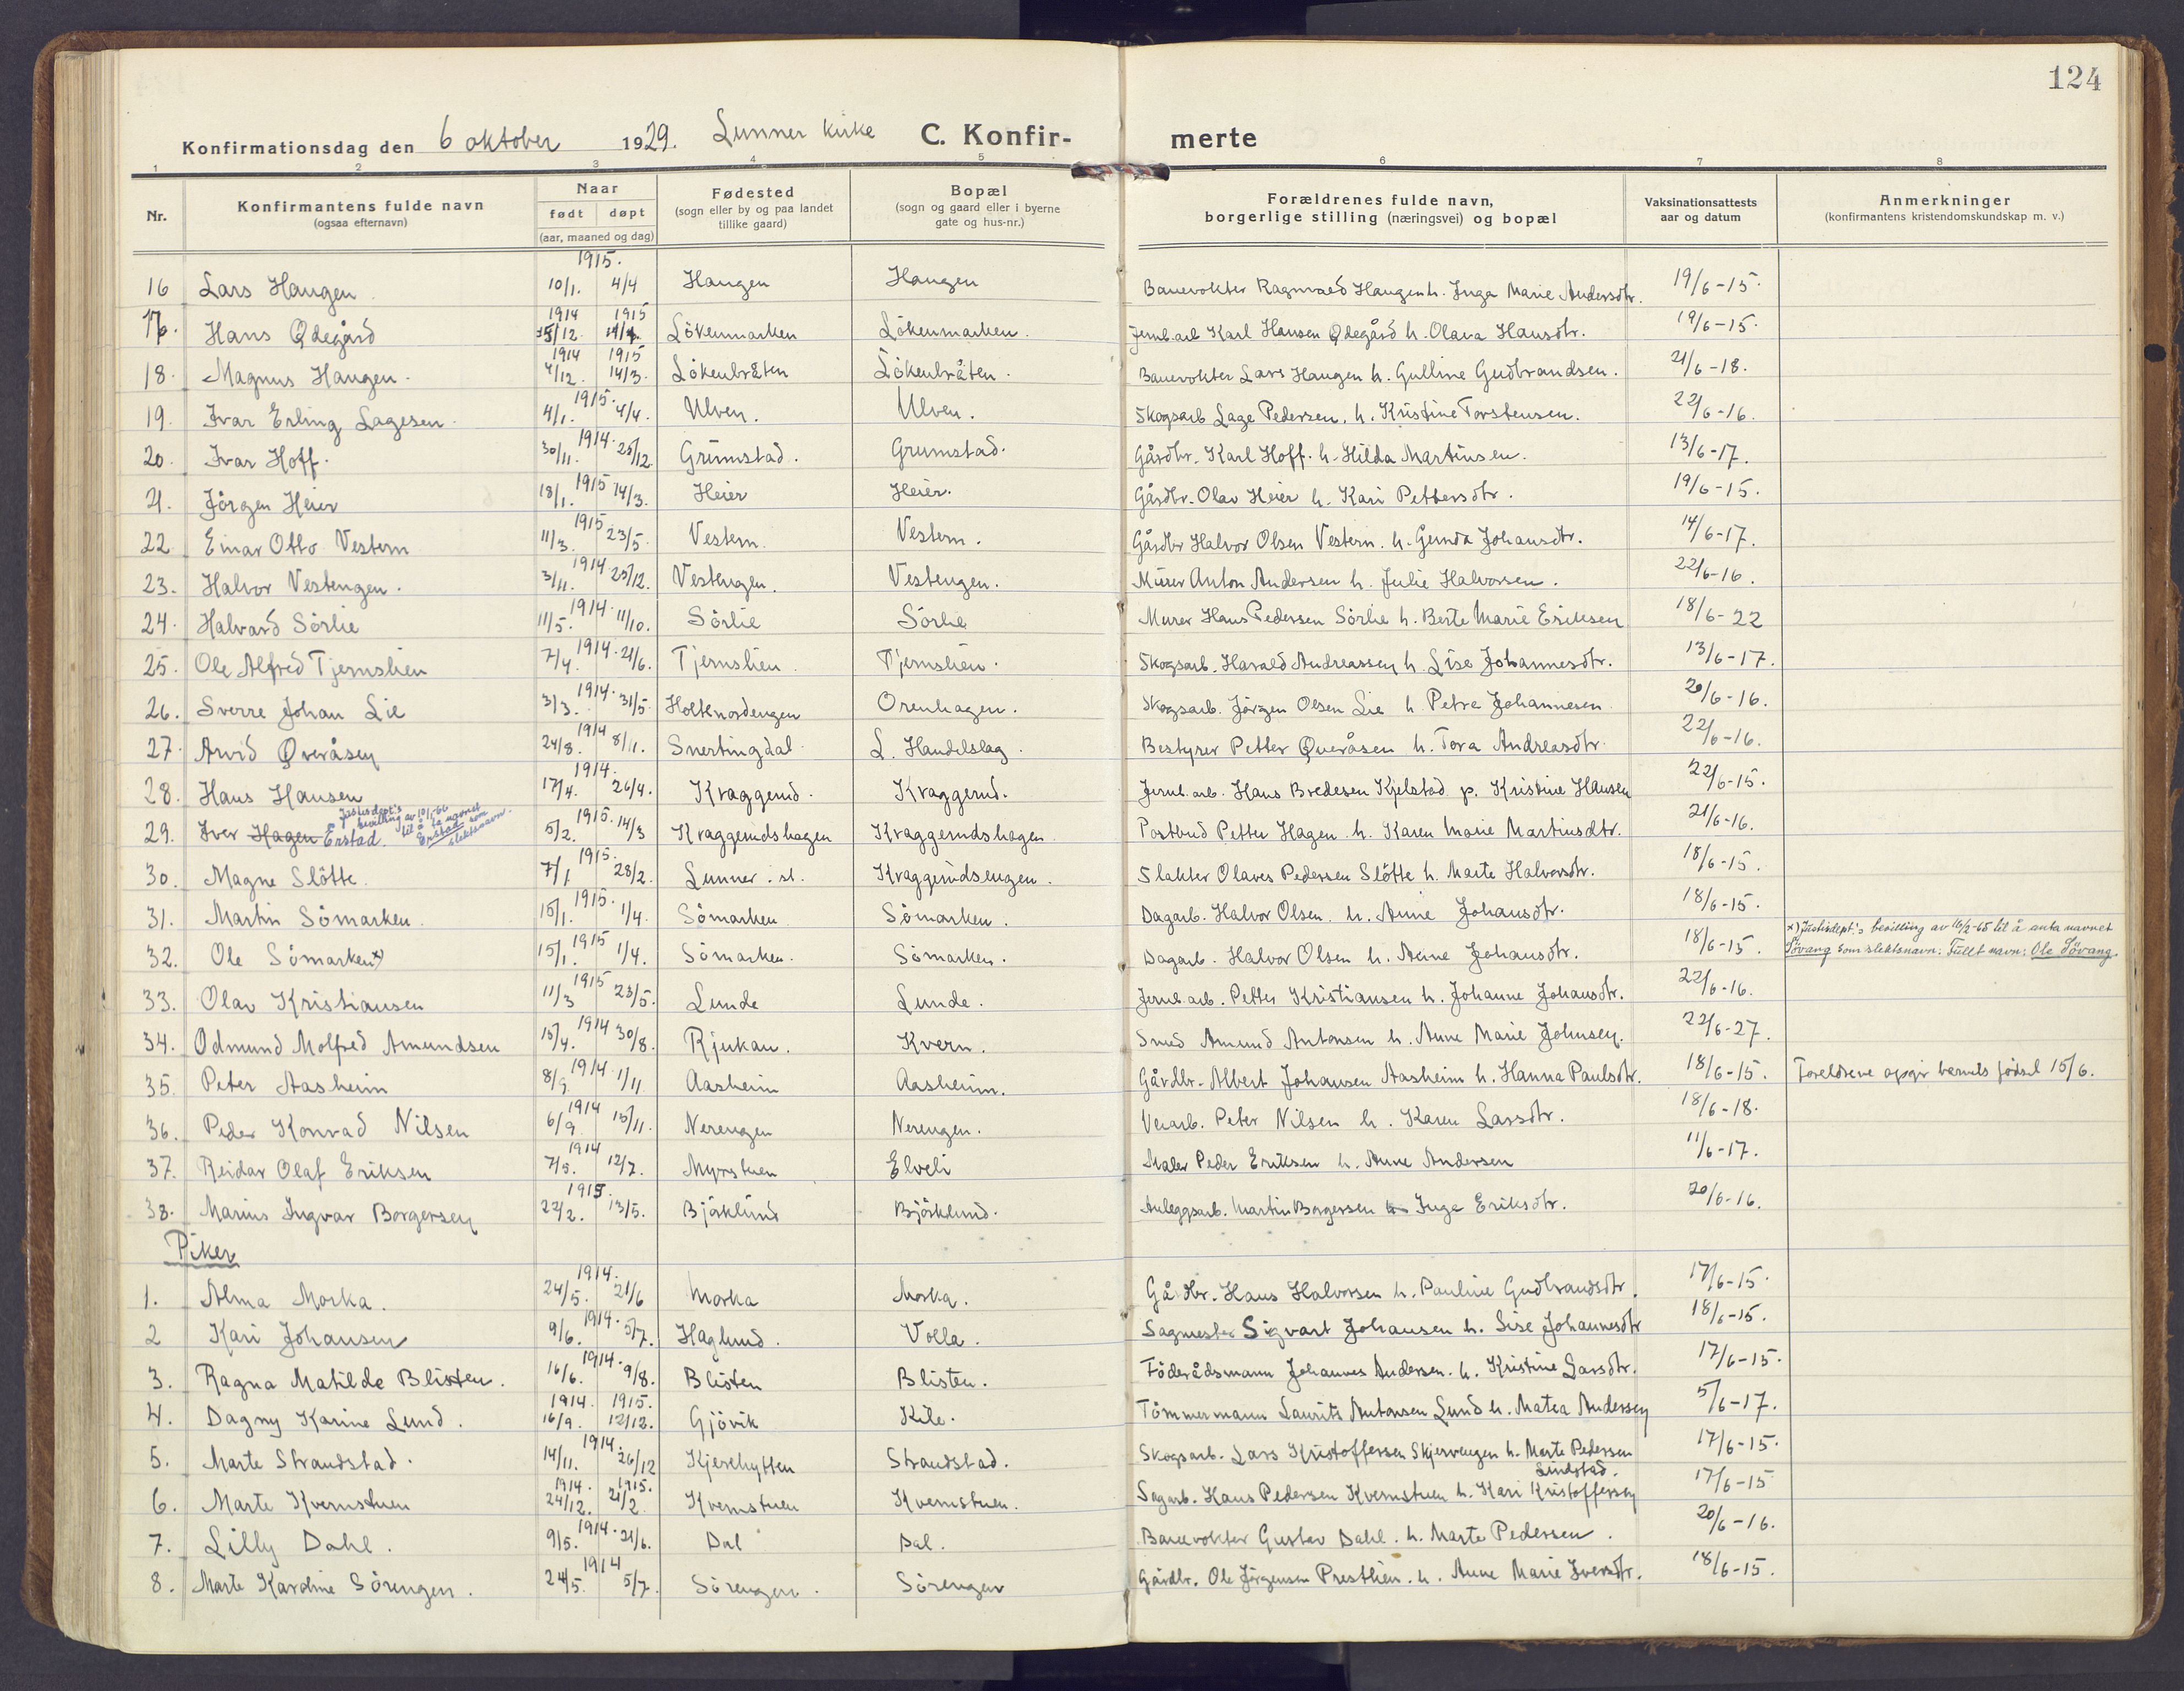 124
Konfirmationsdag den 6 oktober 1929. Lunner kirke C. Konfirmerte
1 2 3 4 5 6 7 8
Nr. Konfirmantens fulde navn (ogsaa efternavn) Naar født døpt (aar, maaned og dag) Fødested (sogn eller by og paa landet tillike gaard) Bopæl (sogn og gaard eller i byerne gate og hus-nr.) Forældrenes fulde navn, borgerlige stilling (næringsvei) og bopæl Vaksinationsattests aar og datum Anmerkninger (konfirmantens kristendomskundskap m. v.)
1915.
16 Lars Haugen 10/1. 4/4 Haugen Haugen Banevokter Ragnvald Haugen h. Inga Marie Andersdtr. 19/6-15.
1914 1915
17. Hans Ødegård 15/12. Lökenmarken Lökenmarken. Jernb.arb Karl Hansen Ødegård h. Olava Hansdtr. 19/6-15.
1914 1915
18. Magnus Haugen. 4/12. 14/3. Lökenbråten Lökenbråten. Banevokter Lars Haugen h. Gulline Gudbrandsen. 21/6-18.
1915.
19. Ivar Erling Lagesen. 4/1. 4/4. Ulven. Ulven. Skogsarb Lage Pedersen. h. Kristine Torstensen. 22/6-16.
1914.
20. Ivar Hoff. 30/11. 25/12. Grumstad. Grumstad. Gårdbr. Karl Hoff. h. Hilda Martinsen. 13/6-17.
1915
21. Jörgen Heier 18/1. 14/3. Heier Heier. Gårdbr. Olav Heier h. Kari Pettersdtr. 19/6-15.
1915
22. Einar Otto Vestern 11/3. 23/5. Vestern. Vestern. Gårdbr Halvor Olsen Vestern. h. Gunda Johansdtr. 14/6-17.
1914
23. Halvor Vestengen. 3/11. 25/12. Vestengen. Vestengen. Murer Anton Andersen h. Julie Halvorsen. 22/6-16.
1914.
24. Halvard Sörlie 11/5. 11/10. Sörlie Sörlie Murer Hans Pedersen Sörlie h. Berte Marie Eriksen 18/6-22
1914.
25. Ole Alfred Tjernslien 7/4. 21/6. Tjernslien. Tjernslien. Skogsarb. Harald Andreassen h. Lise Johannesdtr. 13/6-17.
1914.
26. Sverre Johan Lie 3/3. 31/5. Holtknordengen Orenhagen. Skogsarb. Jörgen Olsen Lie h. Petra Johannesen. 20/6-16.
1914
27. Arvid Øveråsen 24/8. 8/11. Snertingdal. L. Handelslag. Bestyrer Petter Øveråsen h. Tora Andreasdtr. 22/6-16.
1914.
28. Hans Hansen 17/4. 26/4. Kraggerud. Kraggerud. Jernb.arb. Hans Bredesen Kjelstad p. Kristine Hansen 22/6-15.
Justisdept's bevilling av 10/1-66 til å ta navnet Erstad som slektsnavn.
1915.
29. Iver Hagen Erstad. 5/2. 14/3 Kraggerudshagen Kraggerudshagen Postbud Petter Hagen. h. Karen Marie Martinsdtr. 21/6-16.
1915.
30. Magne Slötte. 7/1 28/2. Lunner. st. Kraggerudsengen. Slakter Olaves Pedersen Slötte h. Marte Halvorsdtr. 18/6-15.
1915.
31. Martin Sömarken. 15/1. 1/4. Sömarken. Sömarken. Dagarb. Halvor Olsen. h. Anne Johansdtr. 18/6-15.
1915
32. Ole Sömarken x) 15/1. 1/4. Sömarken. Sömarken. Dagarb. Halvor Olsen h. Anne Johansdtr. 18/6-15. x) Justisdept.'s bevilling av 16/2-65 til å anta navnet Sövang som slektsnavn. Fullt navn: Ole Sövang.
1915
33. Olav Kristiansen 11/3 23/5. Lunde Lunde. Jernb.arb. Petter Kristiansen h. Johanne Johansdtr. 22/6-16.
1914
34. Odmund Molfred Amundsen 15/4. 30/8. Rjukan. Kvern. Smed Amund Antonsen h. Anne Marie Johnsen. 22/6-27.
1914
35. Peter Aasheim 8/9. 1/11. Aasheim Aasheim. Gårdbr. Albert Johansen Aasheim h. Hanna Paulsdtr. 18/6-15. Foreldrene opgir barnets födsel 15/6.
1914
36. Peder Konrad Nilsen 6/9 15/11. Nerengen Nerengen. Veiarb. Peter Nilsen h. Karen Larsdtr. 18/6-18.
1914
37. Reidar Olaf Eriksen 7/5. 12/7. Myrstuen Elveli Maler Peder Eriksen h. Anne Andersen 11/6-17.
1915.
38. Marius Ingvar Borgersen 22/2. 13/5. Björklund Björklund. Anleggsarb. Martin Borgersen h. Inga Eriksdtr. 20/6-16.
Piker
1914.
1. Alma Morka. 24/5. 21/6 Morka Morka. Gårdbr. Hans Halvorsen h. Pauline Gudbrandsdtr. 17/6-15.
1914.
2 Kari Johansen 9/6. 5/7. Haglund. Volla. Sagmester Sigvart Johansen h. Lise Johannesdtr 18/6-15.
1914.
3. Ragna Matilde Blisten. 16/6. 9/8. Blisten Blisten. Föderådsmann Johannes Andersen. h. Kristine Larsdtr. 17/6-15.
1914. 1915.
4. Dagny Karine Lund. 16/9. 12/12. Gjövik Kile. Tömmermann Laurits Antonsen Lund h. Matea Andersen 5/6-17.
1914.
5. Marte Strandstad. 14/11. 26/12 Kjerehytten Strandstad. Skogsarb. Lars Kristoffersen Skjervengen h. Marte Pedersen 17/6-15.
Lindstad.
1914. 1915.
6. Marte Kvernstuen 24/12. 21/2. Kvernstuen Kvernstuen. Sagarb. Hans Pedersen Kvernstuen h. Kari Kristoffersen 17/6-15
1914.
7. Lilly Dahl. 9/5. 21/6. Dal Dal. Banevokter Gustav Dahl. h. Marte Pedersen. 20/6-16.
1914
8. Marte Karoline Sörengen. 24/5. 5/7. Sörengen. Sörengen Gårdbr. Ole Jörgensen Prestlien. h. Anne Marie Iversdtr. 18/6-15.